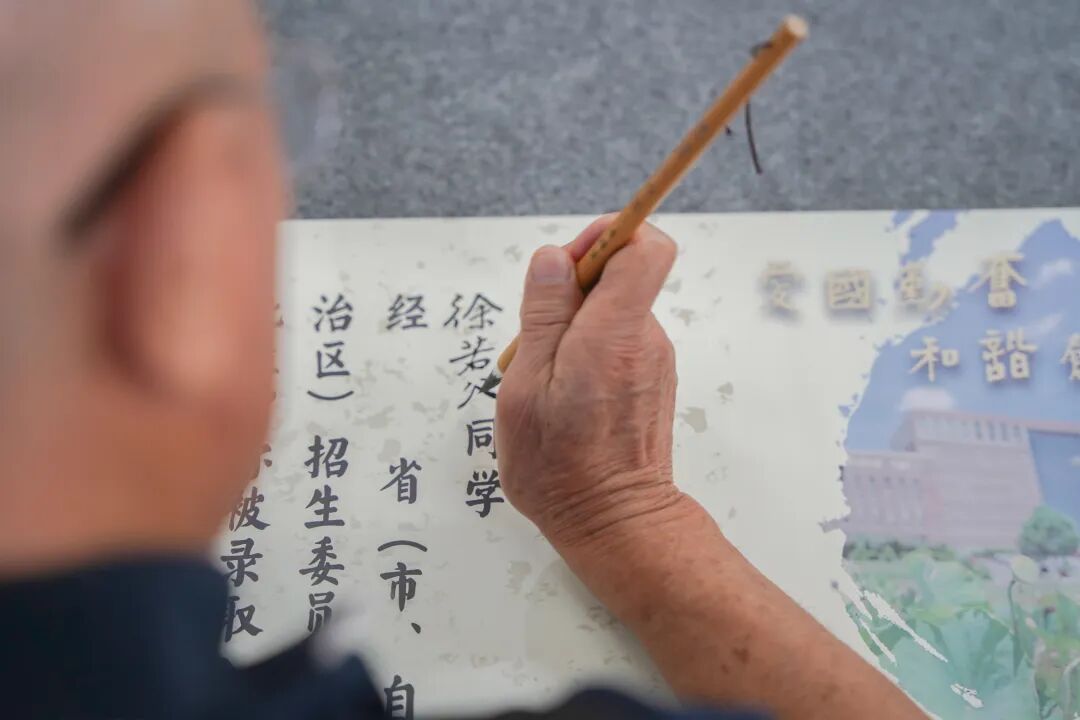 國勤奮
和諧
徐若 同学
经 省（市、自
治区）招生委员
被录取